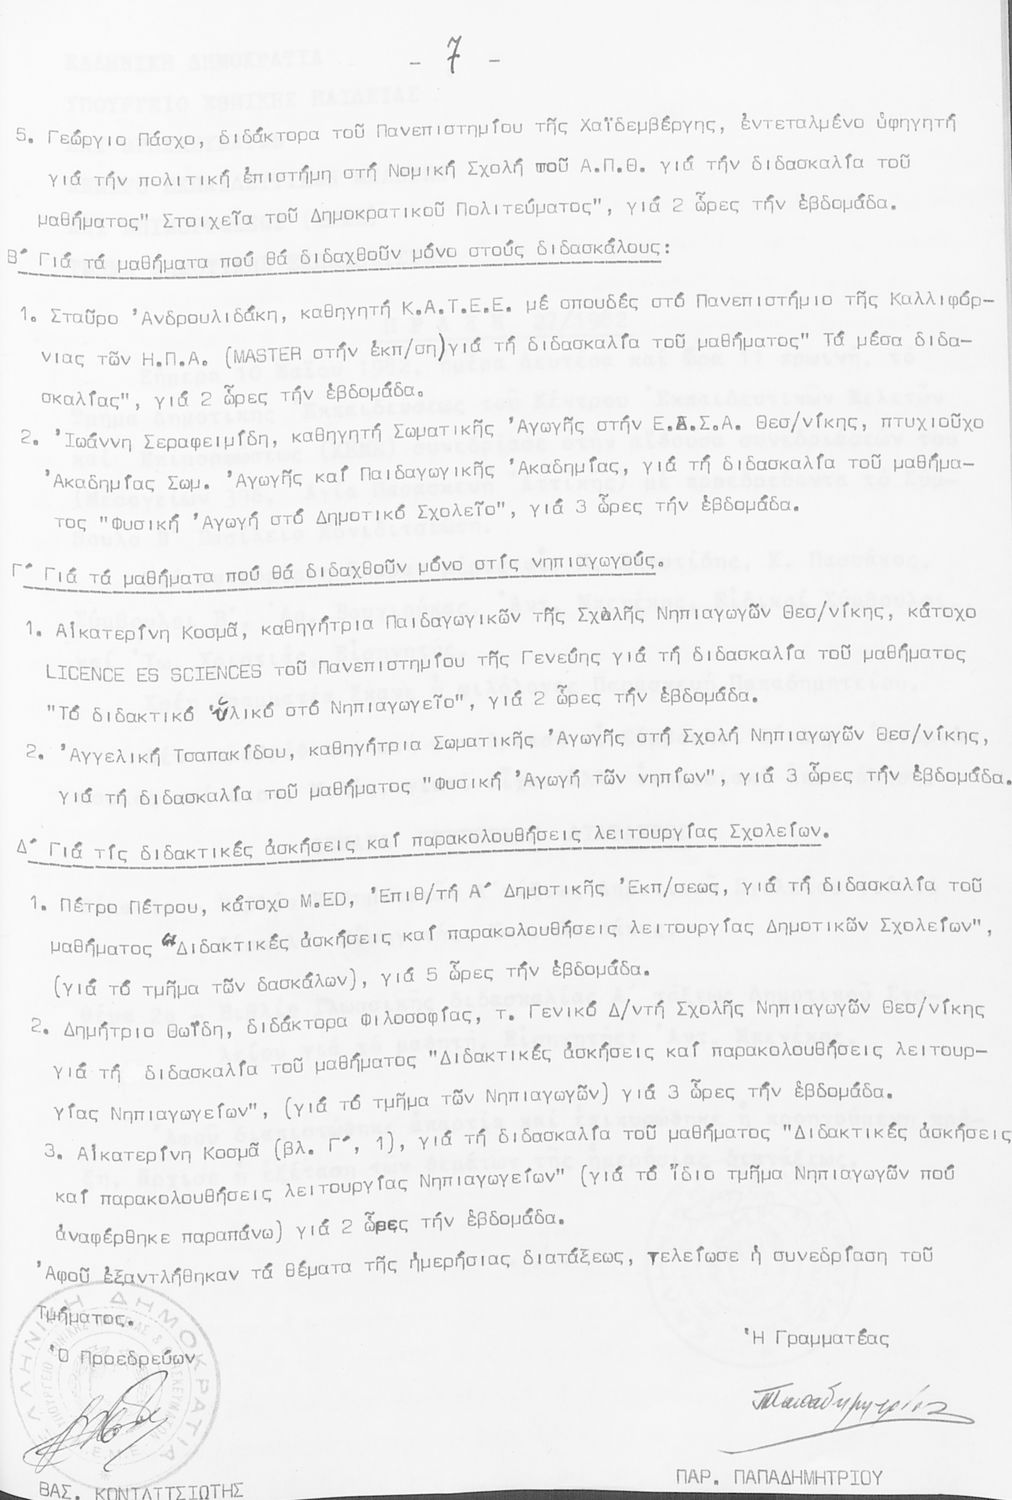 - 7 -
5. Γεώργιο Πάσχο, διδάκτορα τοῦ Πανεπιστημίου τῆς Χαϊδεμβέργης, ἐντεταλμένο ὑφηγητή
γιά τήν πολιτική ἐπιστήμη στή Νομική Σχολή τοῦ Α.Π.Θ. γιά τήν διδασκαλία τοῦ
μαθήματος" Στοιχεῖα τοῦ Δημοκρατικοῦ Πολιτεύματος", γιά 2 ὧρες τήν ἑβδομάδα.
Β΄ Γιά τά μαθήματα πού θά διδαχθοῦν μόνο στούς διδασκάλους:
1. Σταῦρο Ἀνδρουλιδάκη, καθηγητή Κ.Α.Τ.Ε.Ε. μέ σπουδές στό Πανεπιστήμιο τῆς Καλλιφόρ-
νιας τῶν Η.Π.Α. (MASTER στήν ἐκπ/ση)γιά τή διδασκαλία τοῦ μαθήματος" Τά μέσα διδα-
σκαλίας", γιά 2 ὧρες τήν ἑβδομάδα.
2. Ἰωάννη Σεραφειμίδη, καθηγητή Σωματικῆς Ἀγωγῆς στήν Ε.Α.Σ.Α. Θεσ/νίκης, πτυχιοῦχο
Ἀκαδημίας Σωμ. Ἀγωγῆς καί Παιδαγωγικῆς Ἀκαδημίας, γιά τή διδασκαλία τοῦ μαθήμα-
τος "Φυσική Ἀγωγή στό Δημοτικό Σχολεῖο", γιά 3 ὧρες τήν ἑβδομάδα.
Γ΄ Γιά τά μαθήματα πού θά διδαχθοῦν μόνο στίς νηπιαγωγούς.
1. Αἰκατερίνη Κοσμᾶ, καθηγήτρια Παιδαγωγικῶν τῆς Σχολῆς Νηπιαγωγῶν Θεσ/νίκης, κάτοχο
LICENCE ES SCIENCES τοῦ Πανεπιστημίου τῆς Γενεύης γιά τή διδασκαλία τοῦ μαθήματος
"Τό διδακτικό ὑλικό στό Νηπιαγωγεῖο", γιά 2 ὧρες τήν ἑβδομάδα.
2. Ἀγγελική Τσαπακίδου, καθηγήτρια Σωματικῆς Ἀγωγῆς στή Σχολή Νηπιαγωγῶν Θεσ/νίκης,
γιά τή διδασκαλία τοῦ μαθήματος "Φυσική Ἀγωγή τῶν νηπίων", γιά 3 ὧρες τήν ἑβδομάδα.
Δ΄ Γιά τίς διδακτικές ἀσκήσεις καί παρακολουθήσεις λειτουργίας Σχολείων.
1. Πέτρο Πέτρου, κάτοχο M.ED, Ἐπιθ/τή Α΄ Δημοτικῆς Ἐκπ/σεως, γιά τή διδασκαλία τοῦ
μαθήματος "Διδακτικές ἀσκήσεις καί παρακολουθήσεις λειτουργίας Δημοτικῶν Σχολείων",
(γιά τό τμῆμα τῶν δασκάλων), γιά 5 ὧρες τήν ἑβδομάδα.
2. Δημήτριο Θωΐδη, διδάκτορα Φιλοσοφίας, τ. Γενικό Δ/ντή Σχολῆς Νηπιαγωγῶν Θεσ/νίκης
γιά τή διδασκαλία τοῦ μαθήματος "Διδακτικές ἀσκήσεις καί παρακολουθήσεις λειτουρ-
γίας Νηπιαγωγείων", (γιά τό τμῆμα τῶν Νηπιαγωγῶν) γιά 3 ὧρες τήν ἑβδομάδα.
3. Αἰκατερίνη Κοσμᾶ (βλ. Γ΄, 1), γιά τή διδασκαλία τοῦ μαθήματος "Διδακτικές ἀσκήσεις
καί παρακολουθήσεις λειτουργίας Νηπιαγωγείων" (γιά τό ἴδιο τμῆμα Νηπιαγωγῶν πού
ἀναφέρθηκε παραπάνω) γιά 2 ὧρες τήν ἑβδομάδα.
Ἀφοῦ ἐξαντλήθηκαν τά θέματα τῆς ἡμερήσιας διατάξεως, τελείωσε ἡ συνεδρίαση τοῦ
Τμήματος.
Ὁ Προεδρεύων
Ἡ Γραμματέας
ΕΛΛΗΝΙΚΗ ΔΗΜΟΚΡΑΤΙΑ
Παπαδημητρίου
ΒΑΣ. ΚΟΝΤΑΤΣΙΩΤΗΣ
ΠΑΡ. ΠΑΠΑΔΗΜΗΤΡΙΟΥ